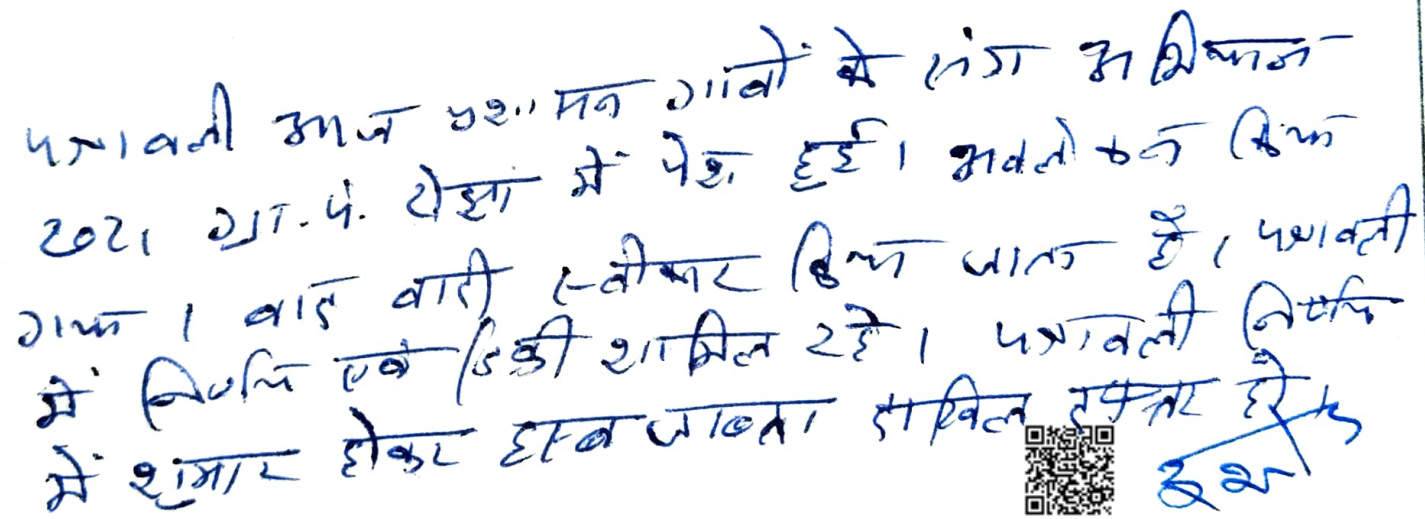 पत्रावली आज प्रशासन गांवों के संग अभियान
2021 ग्रा.पं. में पेश हुई। अवलोकन किया
गया। वाद वादी स्वीकार किया जाता है। पत्रावली
में निर्णय एवं डिक्री शामिल रहे। पत्रावली निर्णय
में शुमार होकर हस्ब जाब्ता दाखिल दफ्तर हो